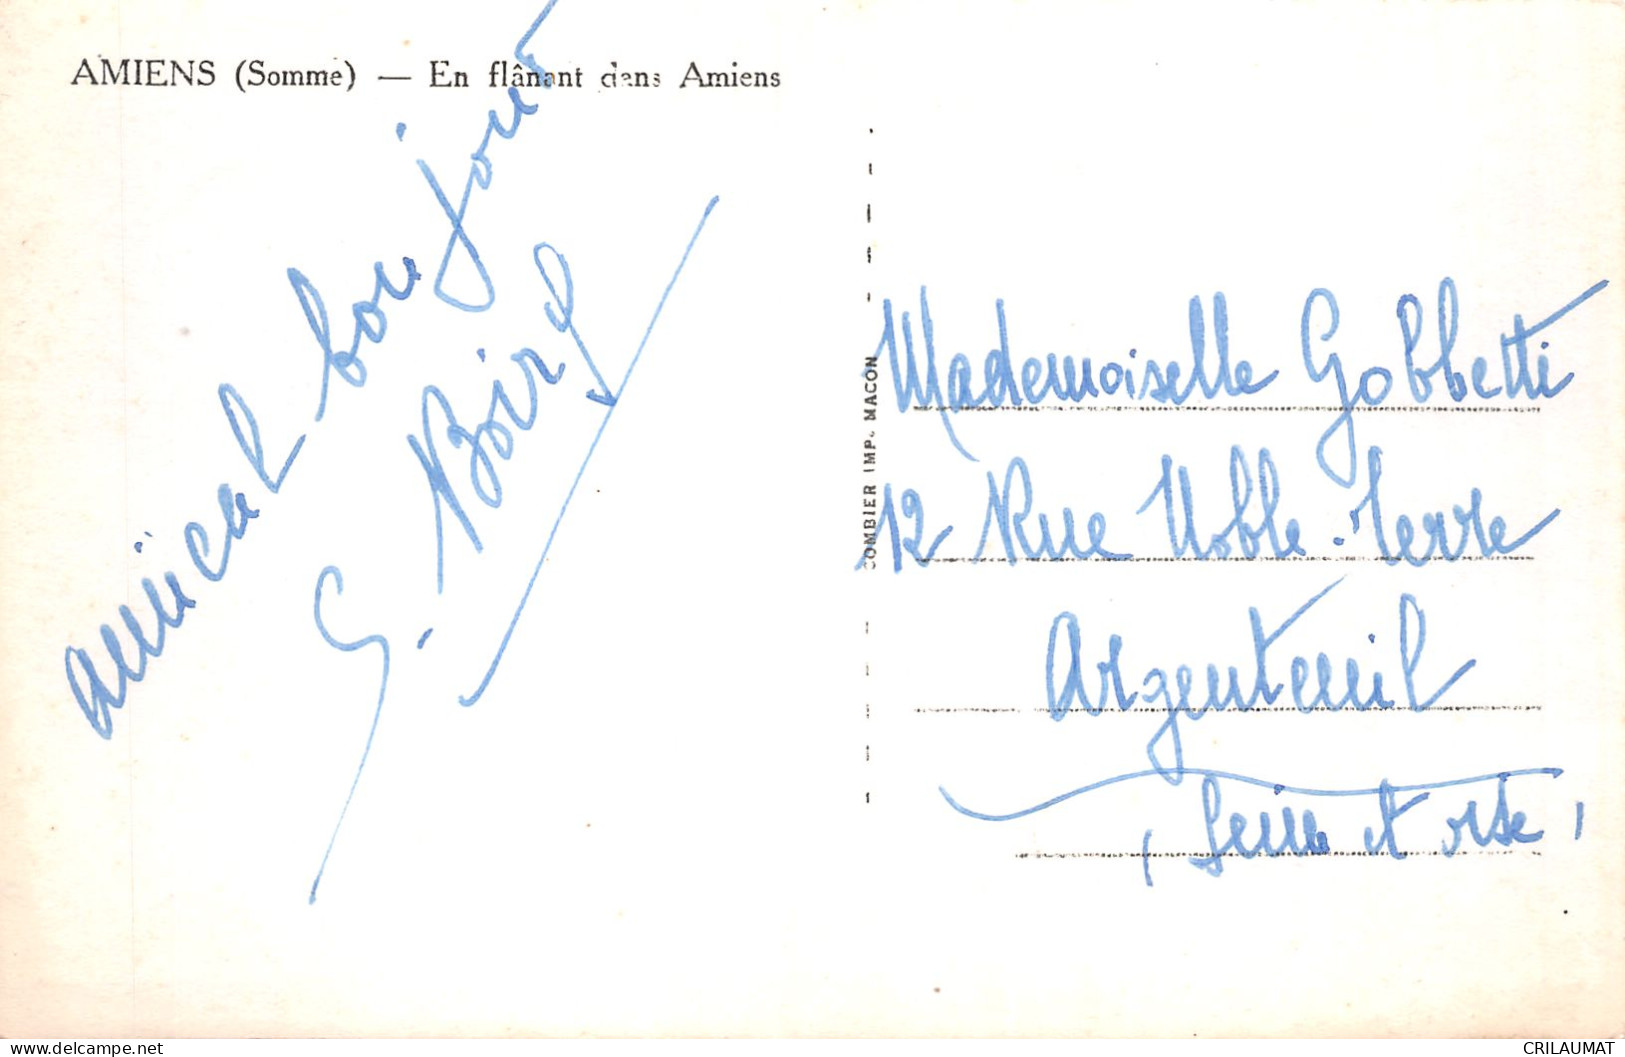 AMIENS (Somme) — En flânant dans Amiens
amical bonjour
G.
COMBIER IMP. MACON
Mademoiselle Gobbetti
12 Rue Noble-Terre
Argenteuil
(Seine et oise)
www.delcampe.net
CRILAUMAT